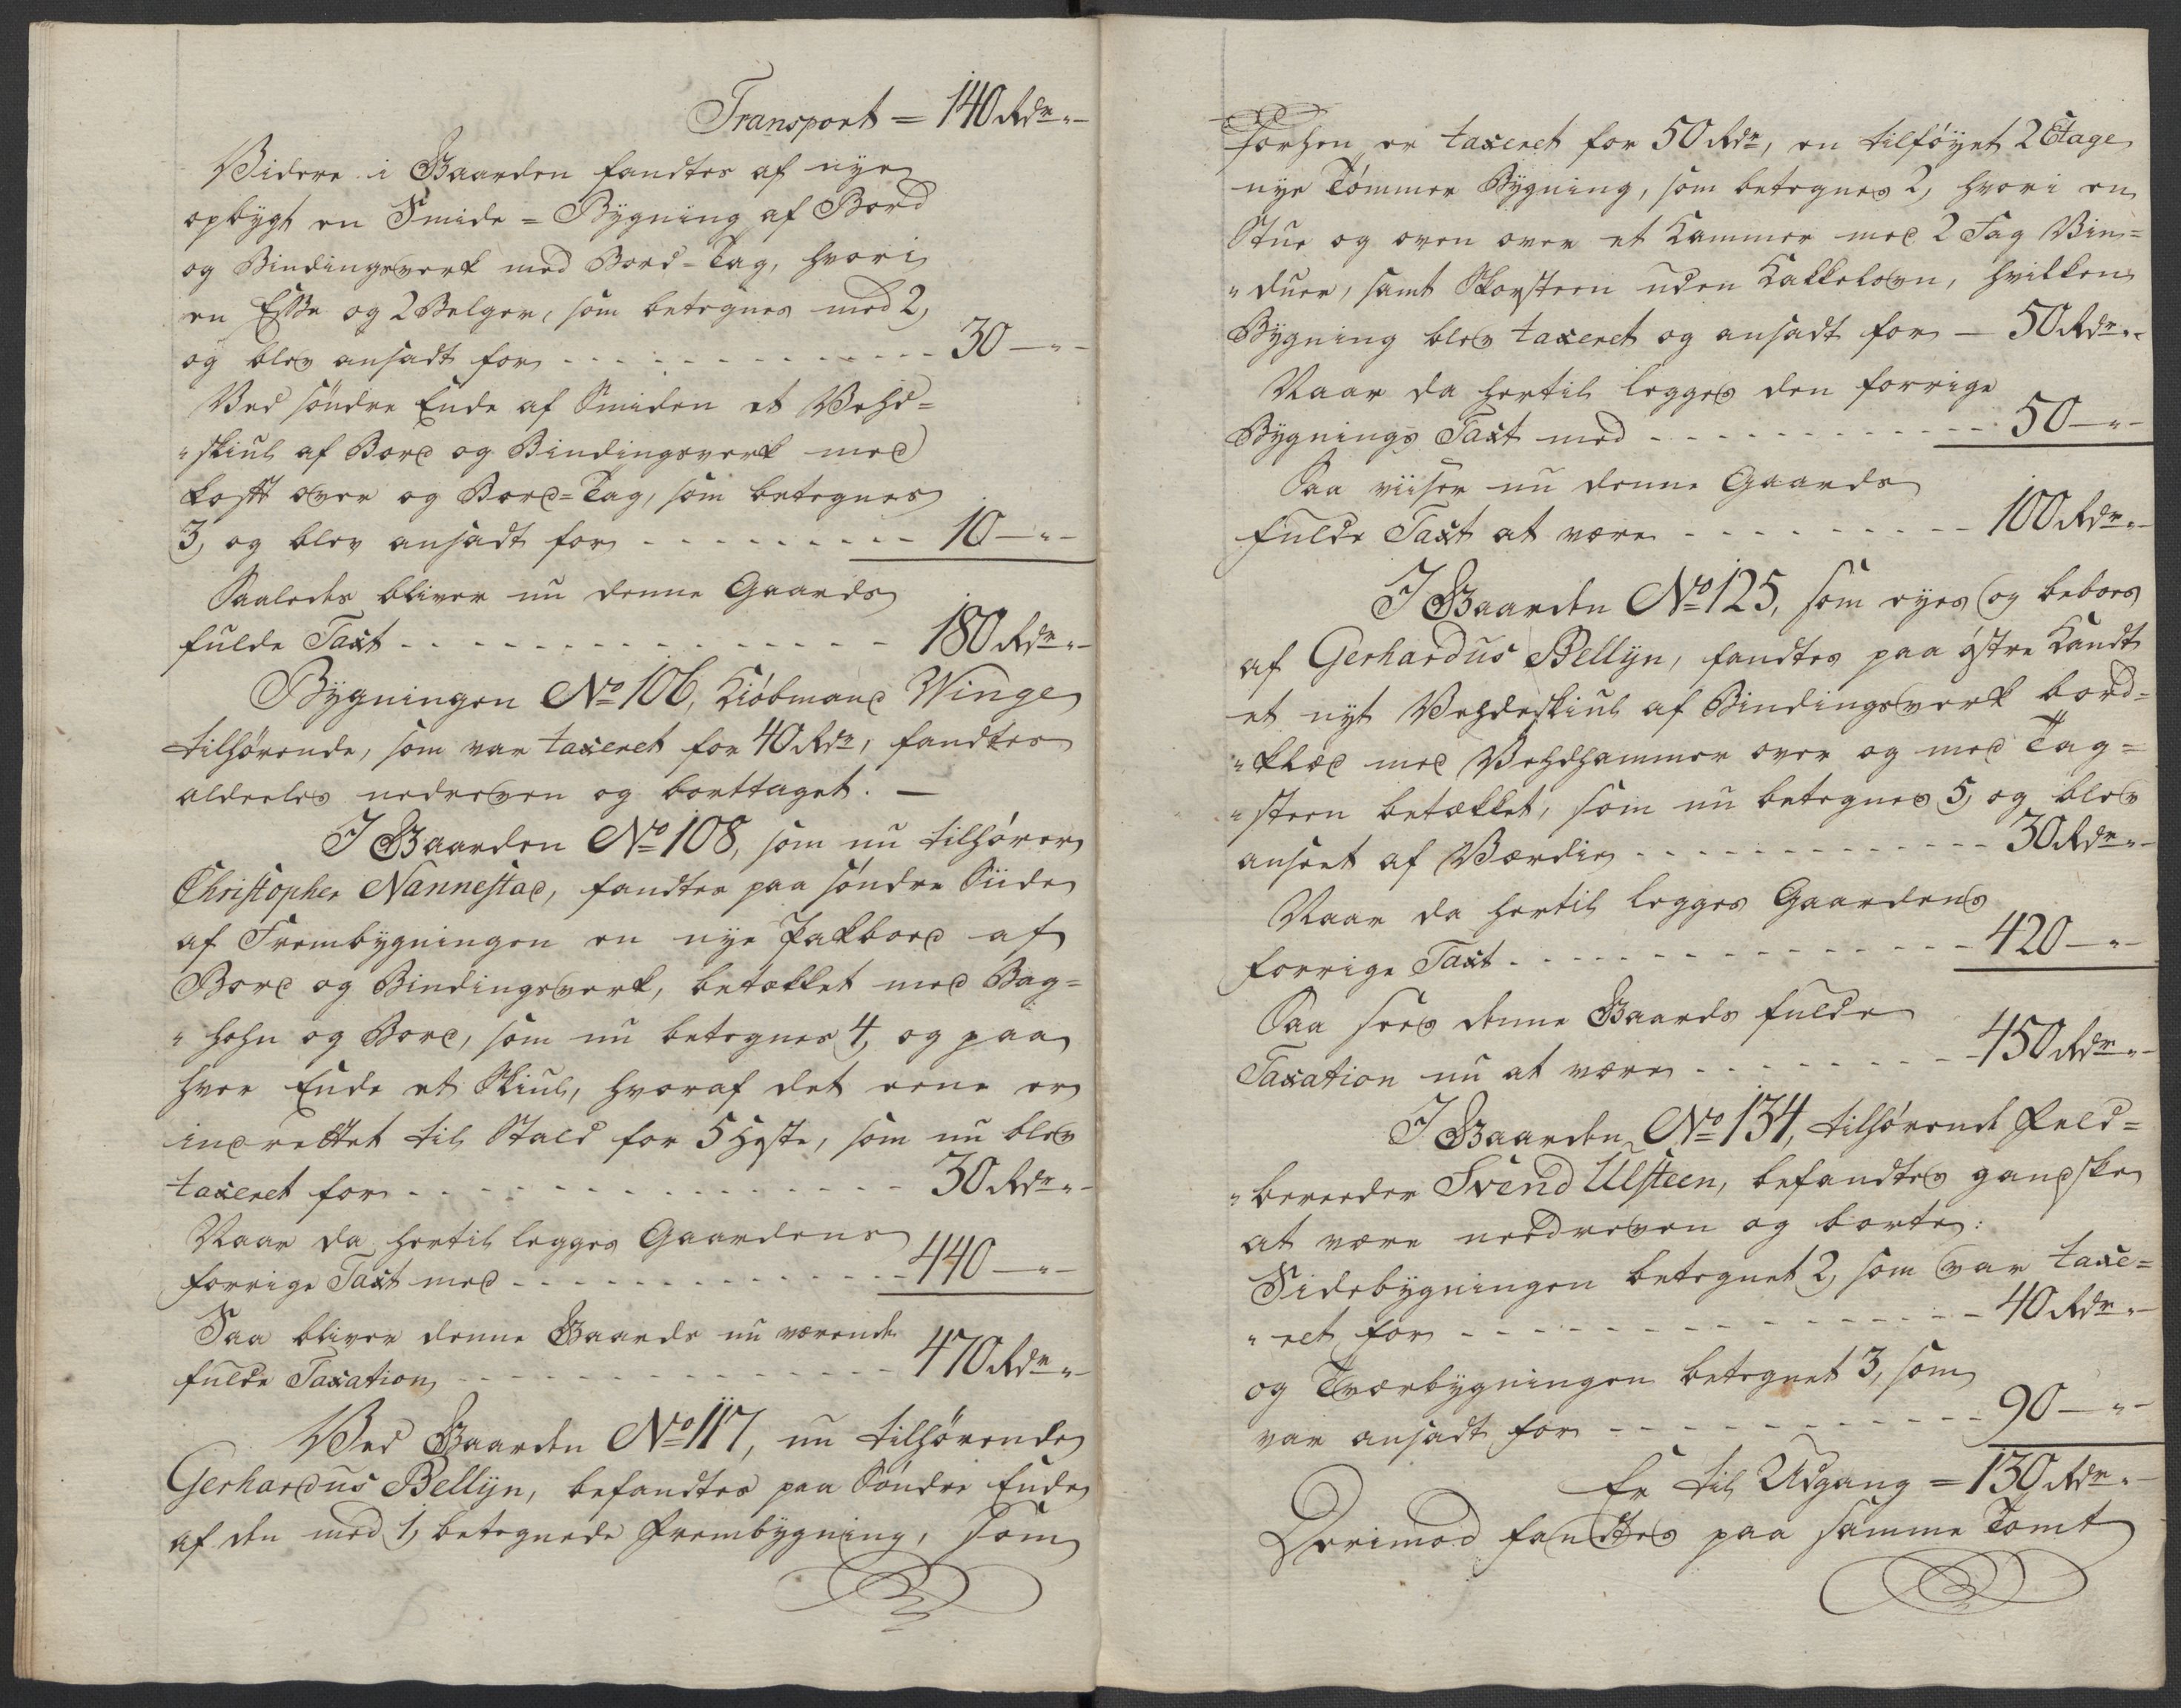 Transport = 140 Rdr "-
Videre i Gaarden fandtes af nye
opbygt en Smide-Bygning af Bord
og Bindingsverk med Bord-Tag, hvori
en Esse og 2 Belger, som betegnes med 2,
og blev ansadt for - - - 30 - " -
Ved søndre Ende af Smiden et Vehd-
" skiul af Bord og Bindingsverk med
Loftt over og Bord-Tag, som betegnes
3, og blev ansadt for - - - 10 - " -
Saaledes bliver nu denne Gaards
fulde Taxt - - - 180 Rdr "-
Bygningen No 106, Kiøbmand Winge
tilhørende, som var taxeret for 40 Rdr, fandtes
aldeeles nedreven og borttaget. -
I Gaarden No 108, som nu tilhører
Christopher Nannestad, fandtes paa søndre Siide
af Frembygningen en nye Pakboed af
Bord og Bindingsverk, betækket med Bag-
" hohn og Bord, som nu betegnes 4, og paa
hver Ende et Skiul, hvoraf det eene er
indrettet til Stald for 5 Heste, som nu blev
taxeret for - - - 30 Rdr "-
Naar da hertil legges Gaardens
forrige Taxt med - - - 440 - " -
Saa bliver denne Gaards nu værende
fulde Taxation - - - 470 Rdr "-
Ved Gaarden No 117, nu tilhørende
Gerhardus Bellijn, befandtes paa Søndre Ende
af den med 1, betegnede Frembygning, som
forhen er taxeret for 50 Rdr, en tilføyet 2 Etage
nye Tømmer Bygning, som betegnes 2, hvori en
Stue og oven over et Kammer med 2 Fag Vin-
" duer, samt Skorsteen uden Kakkelovn, hvilken
Bygning blev taxeret og ansadt for - 50 Rdr "-
Naar da hertil legges den forrige
Bygnings Taxt med - - - 50 - " -
Saa viiser nu denne Gaards
fulde Taxt at være - - - 100 Rdr "-
I Gaarden No 125, som eyes og beboes
af Gerhardus Bellijn, fandtes paa østre Kandt
et nyt Vehdeskiul af Bindingsverk bord-
" klæd med Vehdhammer over og med Tag-
" steen betækket, som nu betegnes 5, og blev
anseet af Værdie - - - 30 Rdr "-
Naar da hertil legges Gaardens
forrige Taxt - - - 420 - " -
Saa sees denne Gaards fulde
Taxation nu at være - - - 450 Rdr "-
I Gaarden No 134, tilhørende Feld-
" bereeder Svend Ulsteen, befandtes gandske
at være needreven og borte:
Sidebygningen betegnet 2, som var taxe-
" ret for - - - 40 Rdr "-
og Tværbygningen betegnet 3, som
var ansadt for - - - 90 - " -
Er til Udgang = 130 Rdr "-
Derimod fandtes paa samme Tomt